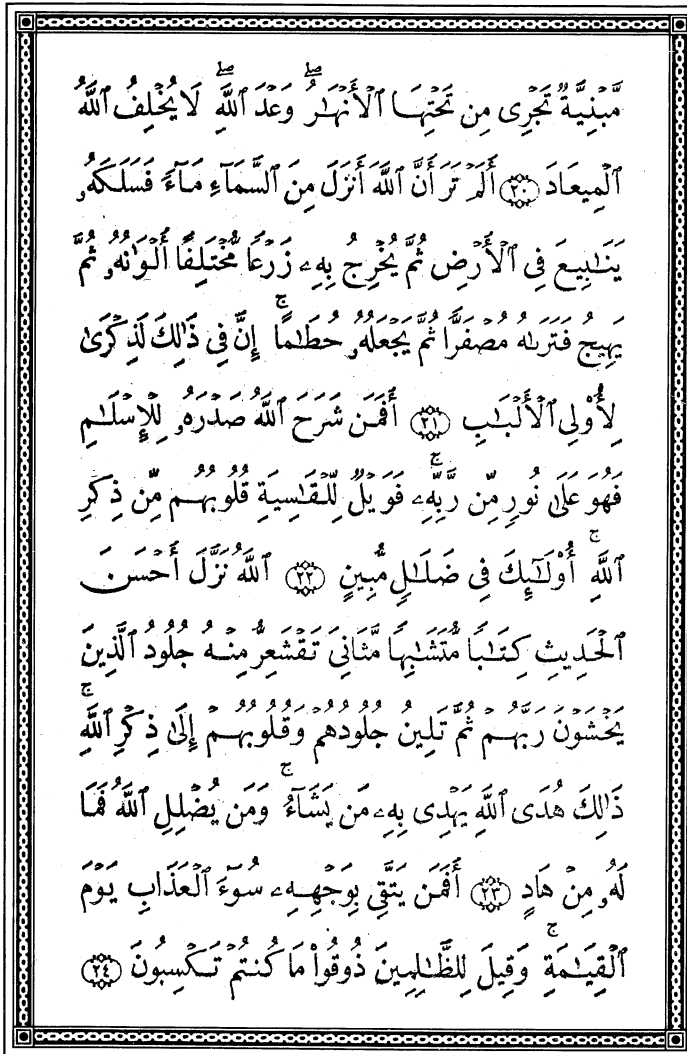 مَّبْنِيَّةٌ تَجْرِى مِن تَحْتِهَا ٱلْأَنْهَـٰرُ ۖ وَعْدَ ٱللَّهِ ۖ لَا يُخْلِفُ ٱللَّهُ
ٱلْمِيعَادَ ﴿٢٠﴾ أَلَمْ تَرَ أَنَّ ٱللَّهَ أَنزَلَ مِنَ ٱلسَّمَآءِ مَآءً فَسَلَكَهُۥ
يَنَـٰبِيعَ فِى ٱلْأَرْضِ ثُمَّ يُخْرِجُ بِهِۦ زَرْعًا مُّخْتَلِفًا أَلْوَٰنُهُۥ ثُمَّ
يَهِيجُ فَتَرَىٰهُ مُصْفَرًّا ثُمَّ يَجْعَلُهُۥ حُطَـٰمًا ۚ إِنَّ فِى ذَٰلِكَ لَذِكْرَىٰ
لِأُو۟لِى ٱلْأَلْبَـٰبِ ﴿٢١﴾ أَفَمَن شَرَحَ ٱللَّهُ صَدْرَهُۥ لِلْإِسْلَـٰمِ
فَهُوَ عَلَىٰ نُورٍ مِّن رَّبِّهِۦ ۚ فَوَيْلٌ لِّلْقَـٰسِيَةِ قُلُوبُهُم مِّن ذِكْرِ
ٱللَّهِ ۚ أُو۟لَـٰٓئِكَ فِى ضَلَـٰلٍ مُّبِينٍ ﴿٢٢﴾ ٱللَّهُ نَزَّلَ أَحْسَنَ
ٱلْحَدِيثِ كِتَـٰبًا مُّتَشَـٰبِهًا مَّثَانِىَ تَقْشَعِرُّ مِنْهُ جُلُودُ ٱلَّذِينَ
يَخْشَوْنَ رَبَّهُمْ ثُمَّ تَلِينُ جُلُودُهُمْ وَقُلُوبُهُمْ إِلَىٰ ذِكْرِ ٱللَّهِ ۚ
ذَٰلِكَ هُدَى ٱللَّهِ يَهْدِى بِهِۦ مَن يَشَآءُ ۚ وَمَن يُضْلِلِ ٱللَّهُ فَمَا
لَهُۥ مِنْ هَادٍ ﴿٢٣﴾ أَفَمَن يَتَّقِى بِوَجْهِهِۦ سُوٓءَ ٱلْعَذَابِ يَوْمَ
ٱلْقِيَـٰمَةِ ۚ وَقِيلَ لِلظَّـٰلِمِينَ ذُوقُوا۟ مَا كُنتُمْ تَكْسِبُونَ ﴿٢٤﴾